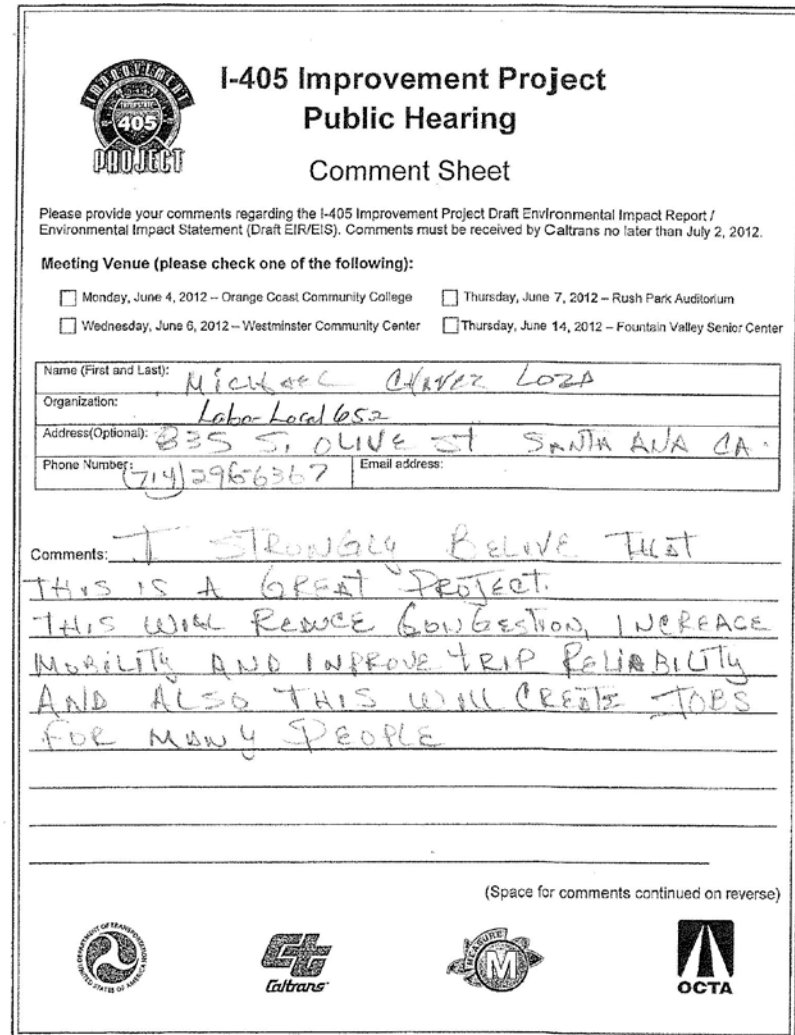 I-405 Improvement Project
Public Hearing
Comment Sheet
IMPROVEMENT
INTERSTATE
405
PROJECT
Please provide your comments regarding the I-405 Improvement Project Draft Environmental Impact Report /
Environmental Impact Statement (Draft EIR/EIS). Comments must be received by Caltrans no later than July 2, 2012.
Meeting Venue (please check one of the following):
Monday, June 4, 2012 – Orange Coast Community College
Thursday, June 7, 2012 – Rush Park Auditorium
Wednesday, June 6, 2012 – Westminster Community Center
Thursday, June 14, 2012 – Fountain Valley Senior Center
Name (First and Last): MICHAEL CHAVEZ LOZA
Organization: Labor Local 652
Address(Optional): 835 S. OLIVE St SANTA ANA CA.
Phone Number: (714) 296-6367 Email address:
Comments: I STRONGLY BELIVE THAT
THIS IS A GREAT PROJECT.
THIS WILL REDUCE CONGESTION, INCREASE
MOBILITY AND INPROVE TRIP RELIABILITY
AND ALSO THIS WILL CREATE JOBS
FOR MANY PEOPLE
(Space for comments continued on reverse)
DEPARTMENT OF TRANSPORTATION
UNITED STATES OF AMERICA
Caltrans
MEASURE
M
OCTA